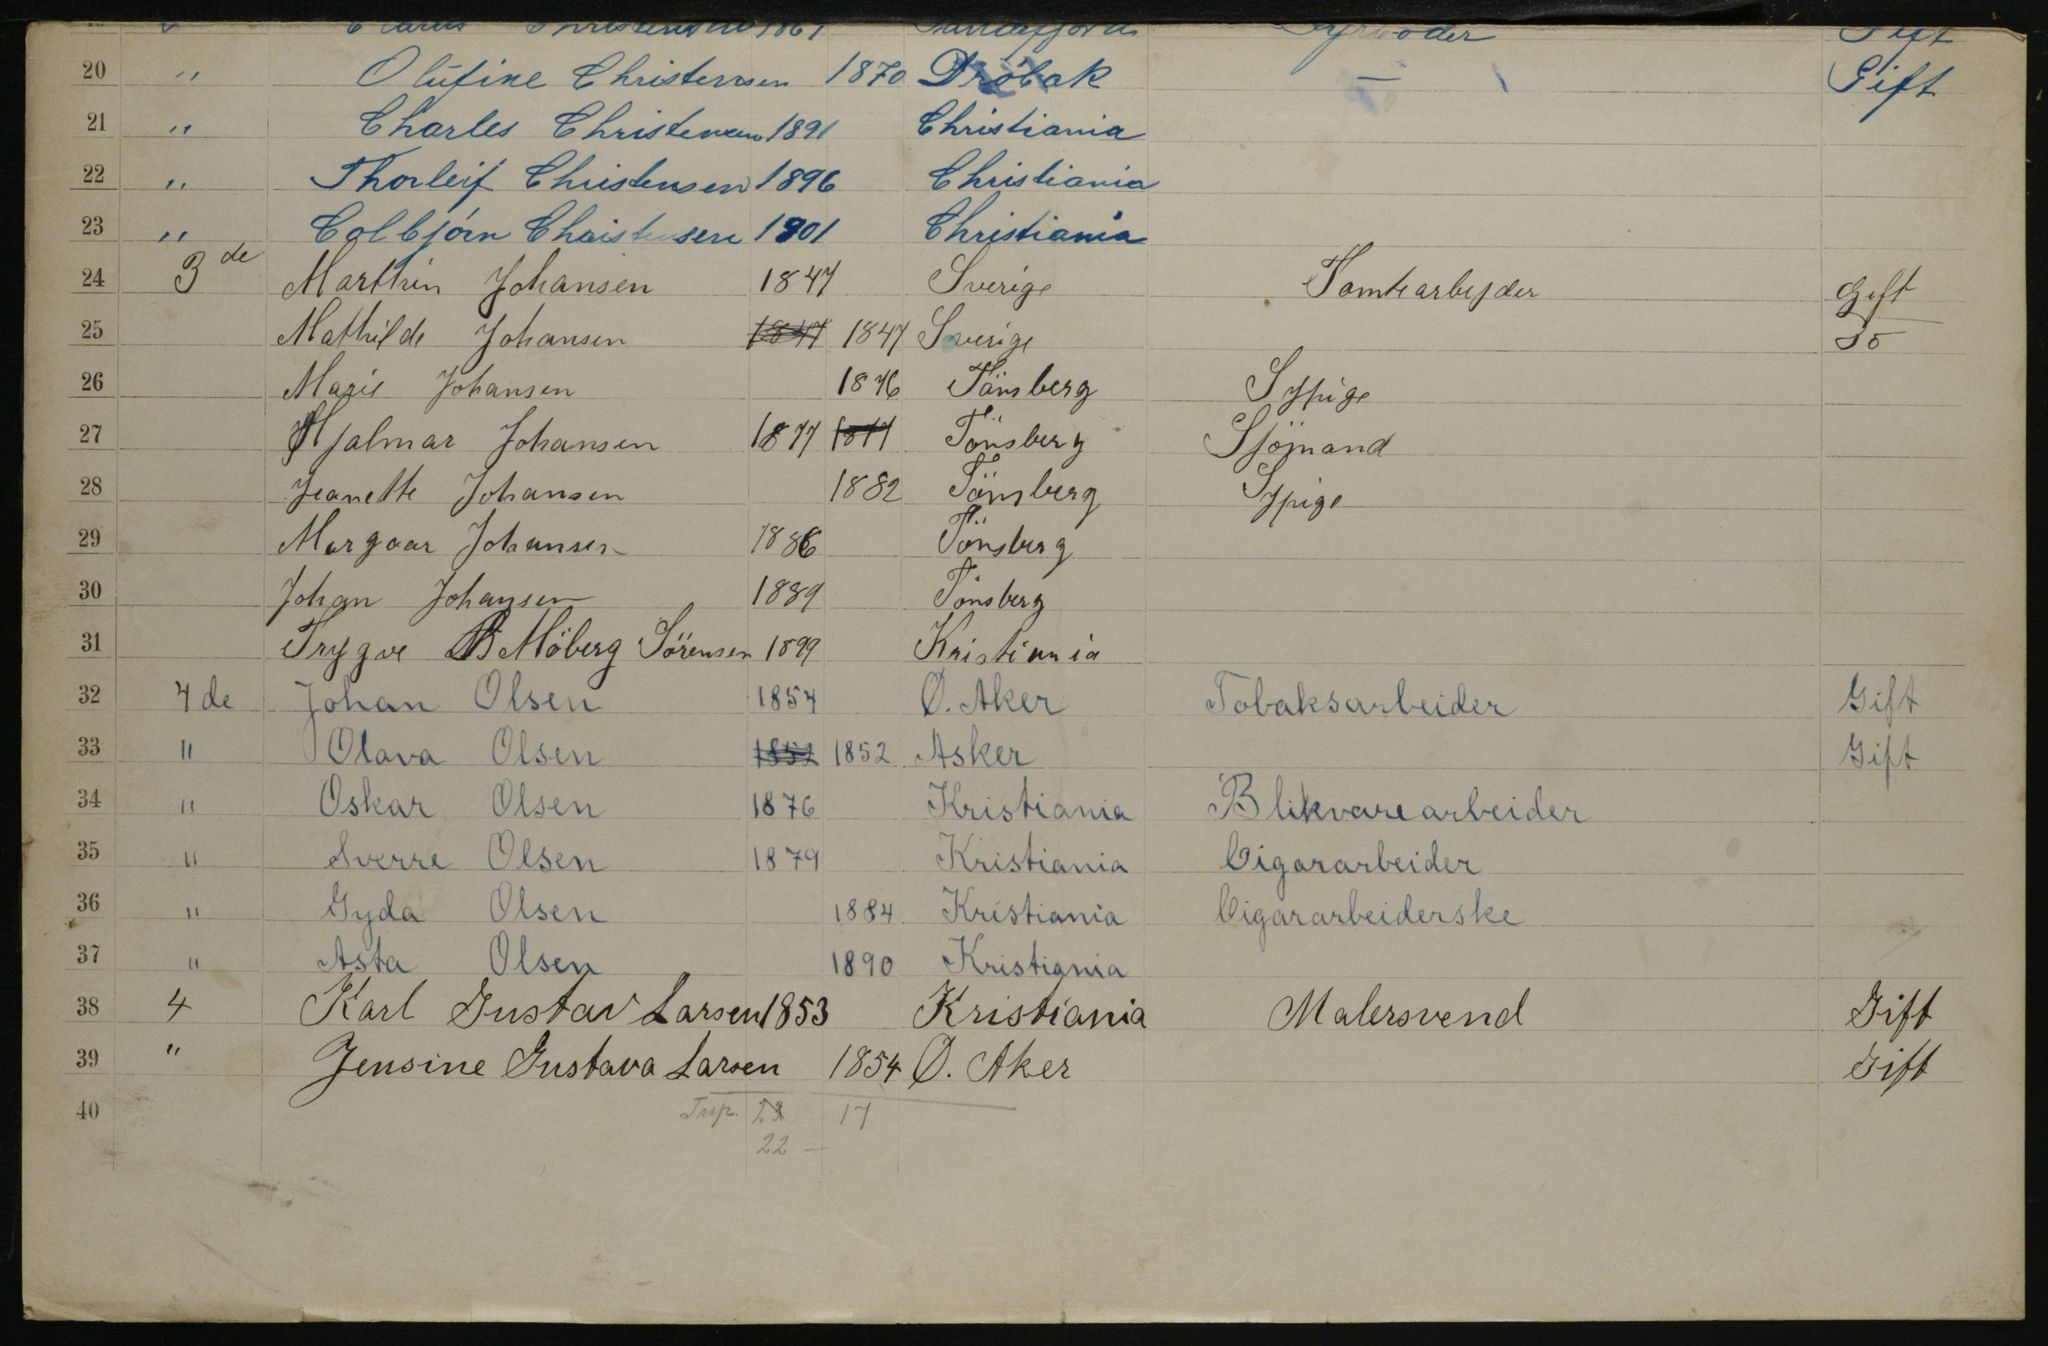 1861 Fyrböder Gift
20 " Olufine Christensen 1870 Dröbak — Gift
21 " Charles Christensen 1891 Christiania
22 " Thorleif Christensen 1896 Christiania
23 " Colbjörn Christensen 1901 Christiania
24 3de Marthin Johansen 1847 Sverige Tomtearbejder Gift
25 Mathilde Johansen 1847 1847 Sverige Do
26 Marie Johansen 1876 Tönsberg Sypige
27 Hjalmar Johansen 1877 1877 Tönsberg Sjömand
28 Jeanette Johansen 1882 Tönsberg Sypige
29 Johansen 1886 Tönsberg
30 Johan Johansen 1889 Tönsberg
31 Trygve B Möberg Sörensen 1899 Kristiania
32 4de Johan Olsen 1854 Ø. Aker Tobaksarbeider Gift
33 " Olava Olsen 1852 1852 Asker Gift
34 " Oskar Olsen 1876 Kristiania Blikvarearbeider
35 " Sverre Olsen 1879 Kristiania Cigararbeider
36 " Gyda Olsen 1884 Kristiania Cigararbeiderske
37 " Asta Olsen 1890 Kristiania
38 4 Karl Gustav Larsen 1853 Kristiania Malersvend Gift
39 " Jensine Gustava Larsen 1854 Ø. Aker Gift
40 Trsp. 23 17
22 —